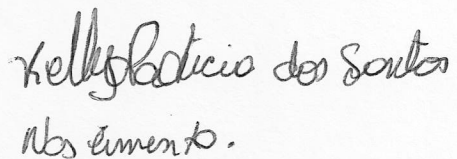 Kelly Patricia dos Santos
Nascimento.